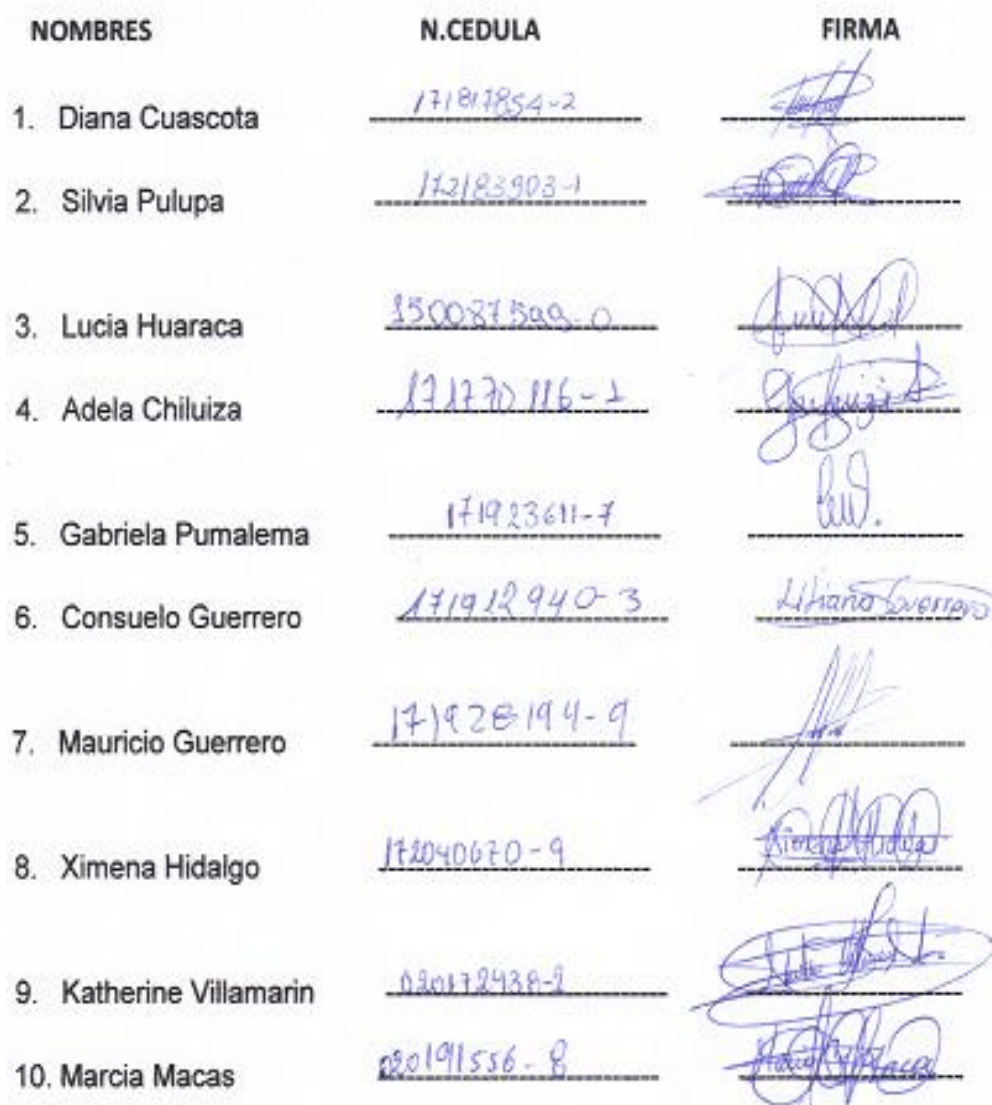 NOMBRES N.CEDULA FIRMA
1. Diana Cuascota 171817854-2
2. Silvia Pulupa 172183903-1
3. Lucia Huaraca 150087599-0
4. Adela Chiluiza 171770116-1
5. Gabriela Pumalema 171923611-7
6. Consuelo Guerrero 171912940-3 Liliana Guerrero
7. Mauricio Guerrero 171928194-9
8. Ximena Hidalgo 172040670-9 Ximena Hidalgo
9. Katherine Villamarin 020172438-2
10. Marcia Macas 020191556-8